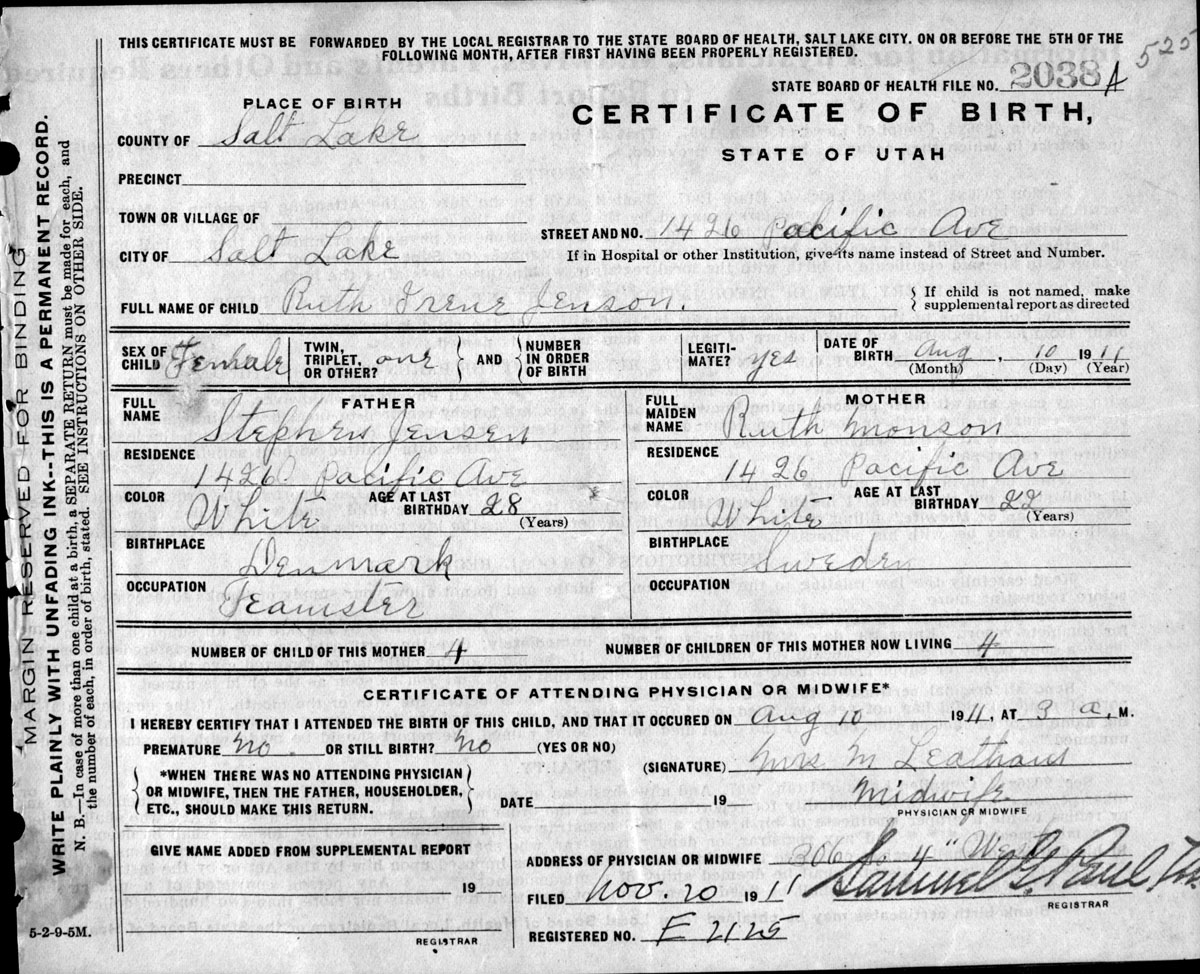 THIS CERTIFICATE MUST BE FORWARDED BY THE LOCAL REGISTRAR TO THE STATE BOARD OF HEALTH, SALT LAKE CITY, ON OR BEFORE THE 5TH OF THE
FOLLOWING MONTH, AFTER FIRST HAVING BEEN PROPERLY REGISTERED.
525
STATE BOARD OF HEALTH FILE NO. 2038 A
MARGIN RESERVED FOR BINDING
WRITE PLAINLY WITH UNFADING INK--THIS IS A PERMANENT RECORD.
N. B.—In case of more than one child at a birth, a SEPARATE RETURN must be made for each, and
the number of each, in order of birth, stated. SEE INSTRUCTIONS ON OTHER SIDE.
PLACE OF BIRTH
CERTIFICATE OF BIRTH,
STATE OF UTAH
COUNTY OF Salt Lake
PRECINCT
TOWN OR VILLAGE OF
STREET AND NO. 1426 Pacific Ave
CITY OF Salt Lake
If in Hospital or other Institution, give its name instead of Street and Number.
FULL NAME OF CHILD Ruth Irene Jenson.
If child is not named, make
supplemental report as directed
SEX OF CHILD Female
TWIN, TRIPLET, OR OTHER? one
AND
NUMBER IN ORDER OF BIRTH
LEGITIMATE? yes
DATE OF BIRTH Aug, 10 1911
(Month) (Day) (Year)
FATHER
FULL NAME Stephen Jensen
RESIDENCE
1426 Pacific Ave
COLOR White AGE AT LAST BIRTHDAY 28 (Years)
BIRTHPLACE Denmark
OCCUPATION Teamster
MOTHER
FULL MAIDEN NAME Ruth Monson
RESIDENCE
1426 Pacific Ave
COLOR White AGE AT LAST BIRTHDAY 22 (Years)
BIRTHPLACE Sweden
OCCUPATION
NUMBER OF CHILD OF THIS MOTHER 4 NUMBER OF CHILDREN OF THIS MOTHER NOW LIVING 4
CERTIFICATE OF ATTENDING PHYSICIAN OR MIDWIFE*
I HEREBY CERTIFY THAT I ATTENDED THE BIRTH OF THIS CHILD, AND THAT IT OCCURED ON Aug 10 1911, AT 3 a, M.
PREMATURE no. OR STILL BIRTH? no (YES OR NO)
(SIGNATURE) Mrs M
*WHEN THERE WAS NO ATTENDING PHYSICIAN
OR MIDWIFE, THEN THE FATHER, HOUSEHOLDER,
ETC., SHOULD MAKE THIS RETURN.
DATE 19 Midwife
PHYSICIAN OR MIDWIFE
GIVE NAME ADDED FROM SUPPLEMENTAL REPORT
19
REGISTRAR
ADDRESS OF PHYSICIAN OR MIDWIFE 306 So 4" West
FILED Nov. 20 1911 Samuel G. Paul
REGISTRAR
REGISTERED NO. E 2125
5-2-9-5M.